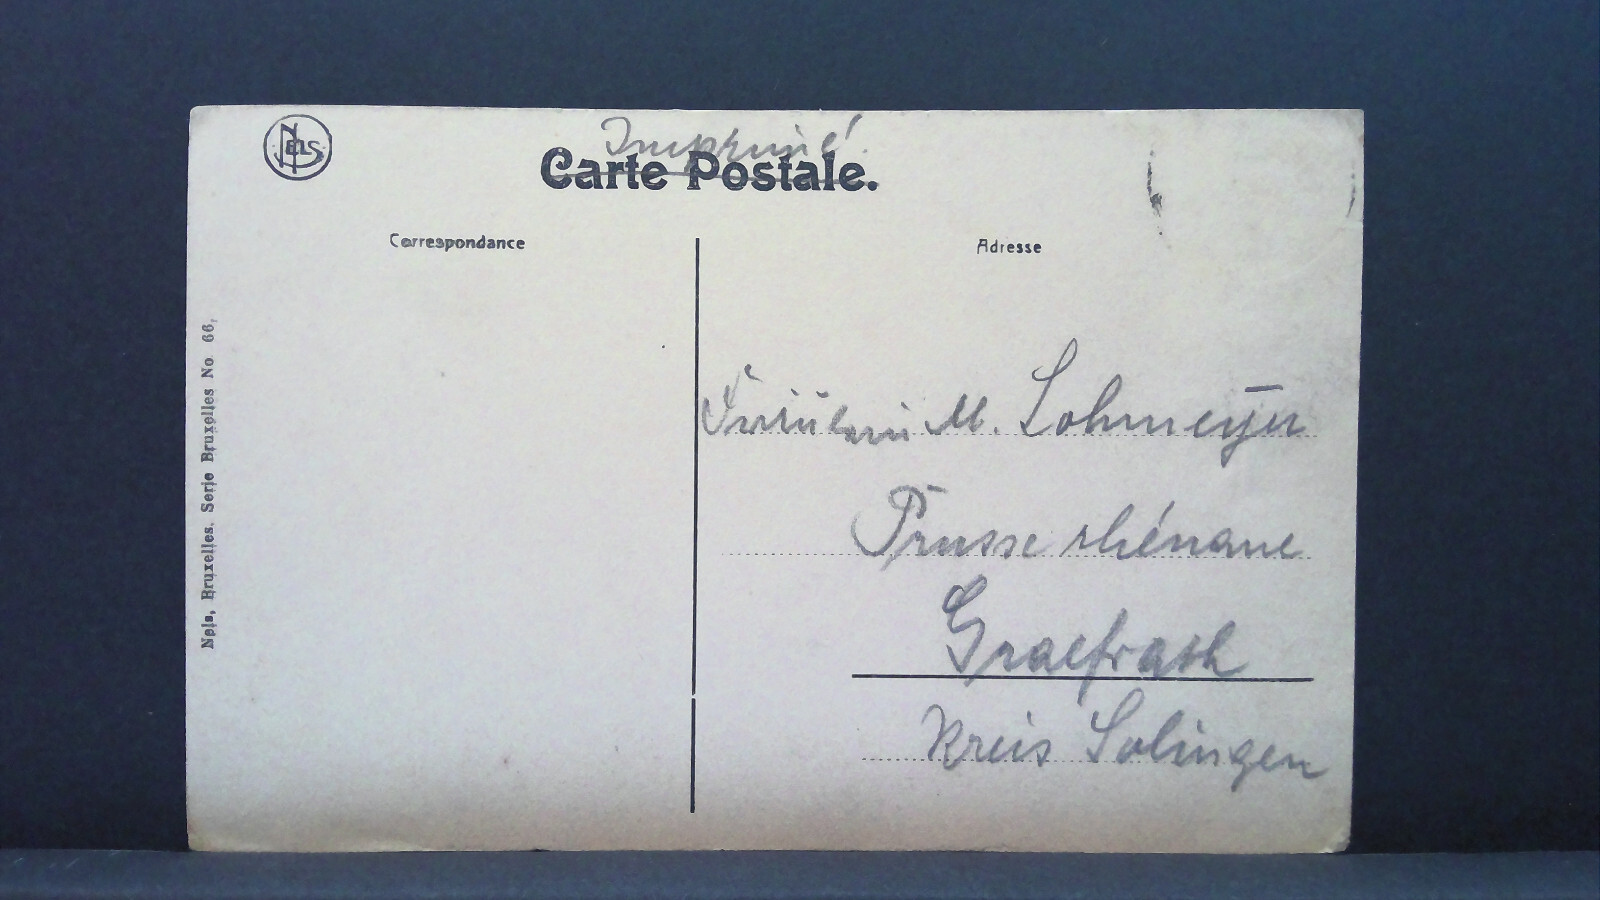 NELS
Imprimé.
Carte Postale.
Correspondance
Adresse
Nels, Bruxelles. Serie Bruxelles No 66,
Fräulein M. Lohmeyer
Prusse rhénane
Graefrath
Kreis Solingen